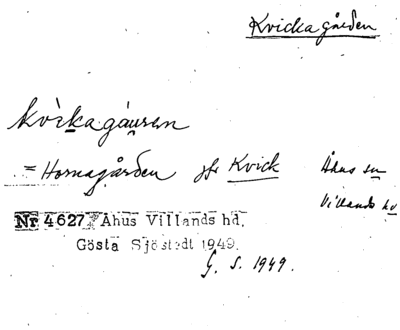 Kvickagården
kvìkagáụren
= Hornagården jfr Kvick
Åhus sn
Villands hd
Nr 4627 Åhus Villands hd.
Gösta Sjöstedt 1949.
G. S. 1949.